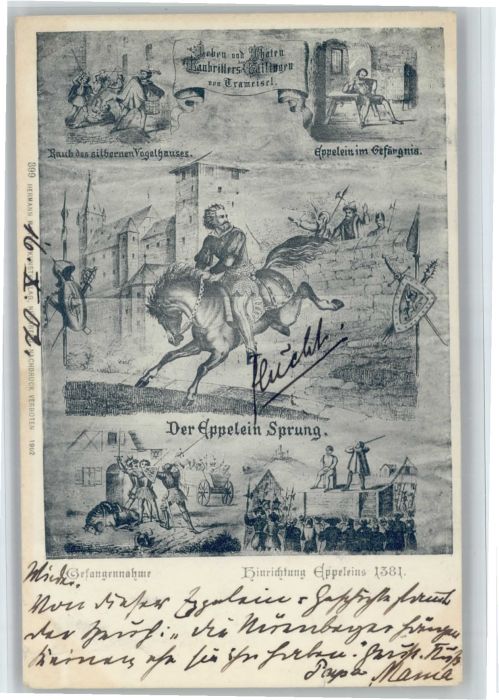 Leben und Thaten
Raubritters Gailingen
von Trameisel.
Raub des silbernen Vogelhauses.
Eppelein im Gefängnis.
399 HERMANN NACHDRUCK VERBOTEN 1902
16. X. 02.
Flucht.
Der Eppelein Sprung.
Gefangennahme
Hinrichtung Eppeleins 1381.
Von dieser Eppelein-Geschichte stammt
der Spruch: „die Nürnberger hängen
keinen, ehe sie ihn haben. Gruß Kuß
Papa, Mama